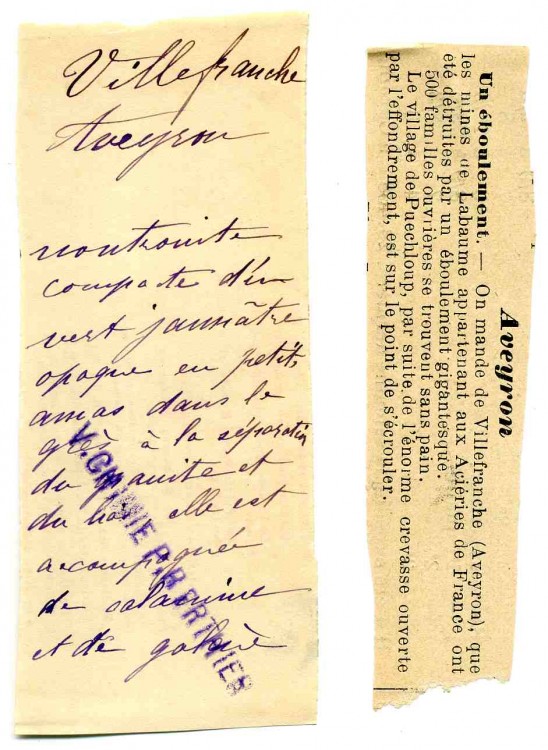 Villefranche
Aveyron
nontronite
compacte d'un
vert jaunâtre
opaque en petits
amas dans le
grès à la séparation
du granite et
du lias elle est
accompagnée
de calamine
et de galène
Aveyron
Un éboulement. — On mande de Villefranche (Aveyron), que
les mines de Labaume appartenant aux Aciéries de France ont
été détruites par un éboulement gigantesque.
500 familles ouvrières se trouvent sans pain.
Le village de Puechloup, par suite de l'énorme crevasse ouverte
par l'effondrement, est sur le point de s'écrouler.